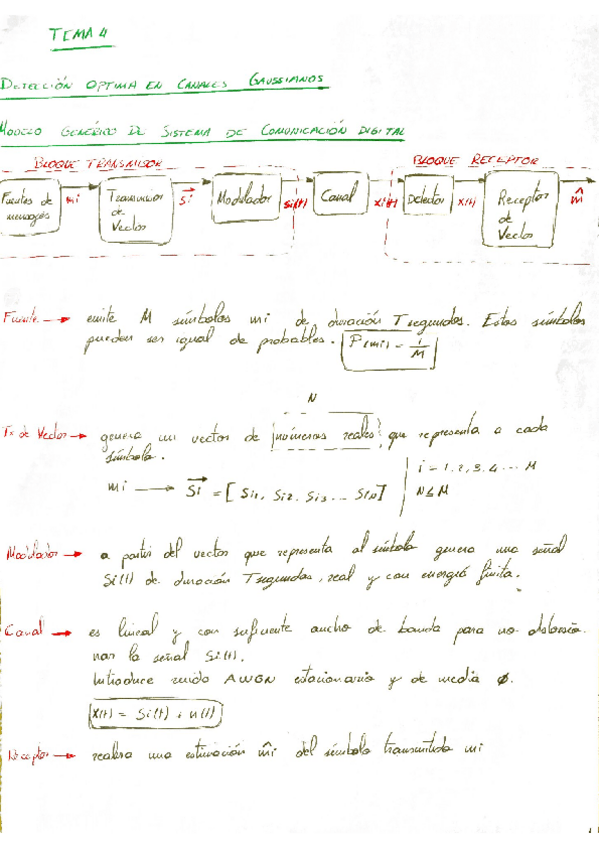 TEMA 4
DETECCIÓN OPTIMA EN CANALES GAUSSIANOS
MODELO GENÉRICO DE SISTEMA DE COMUNICACIÓN DIGITAL
BLOQUE TRANSMISOR BLOQUE RECEPTOR
Fuentes de mensajes mi Transmisor de Vector Si Modulador Si(t) Canal X(t) Detector X(t) Receptor de Vector m̂
Fuente → emite M símbolos mi de duración T segundos. Estos símbolos
pueden ser igual de probables. P(mi) = 1/M
N
Tx de Vector → genera un vector de números reales, que representa a cada
símbolo.
mi → Si = [Si1, Si2, Si3 ... SiN] | i = 1, 2, 3, 4 ... M
N ≤ M
Modulador → a partir del vector que representa al símbolo genera una señal
Si(t) de duración T segundos, real y con energía finita.
Canal → es lineal y con suficiente ancho de banda para no distorsio-
nar la señal Si(t).
Introduce ruido AWGN estacionario y de media Ø.
X(t) = Si(t) + n(t)
Receptor → realiza una estimación m̂i del símbolo transmitido mi